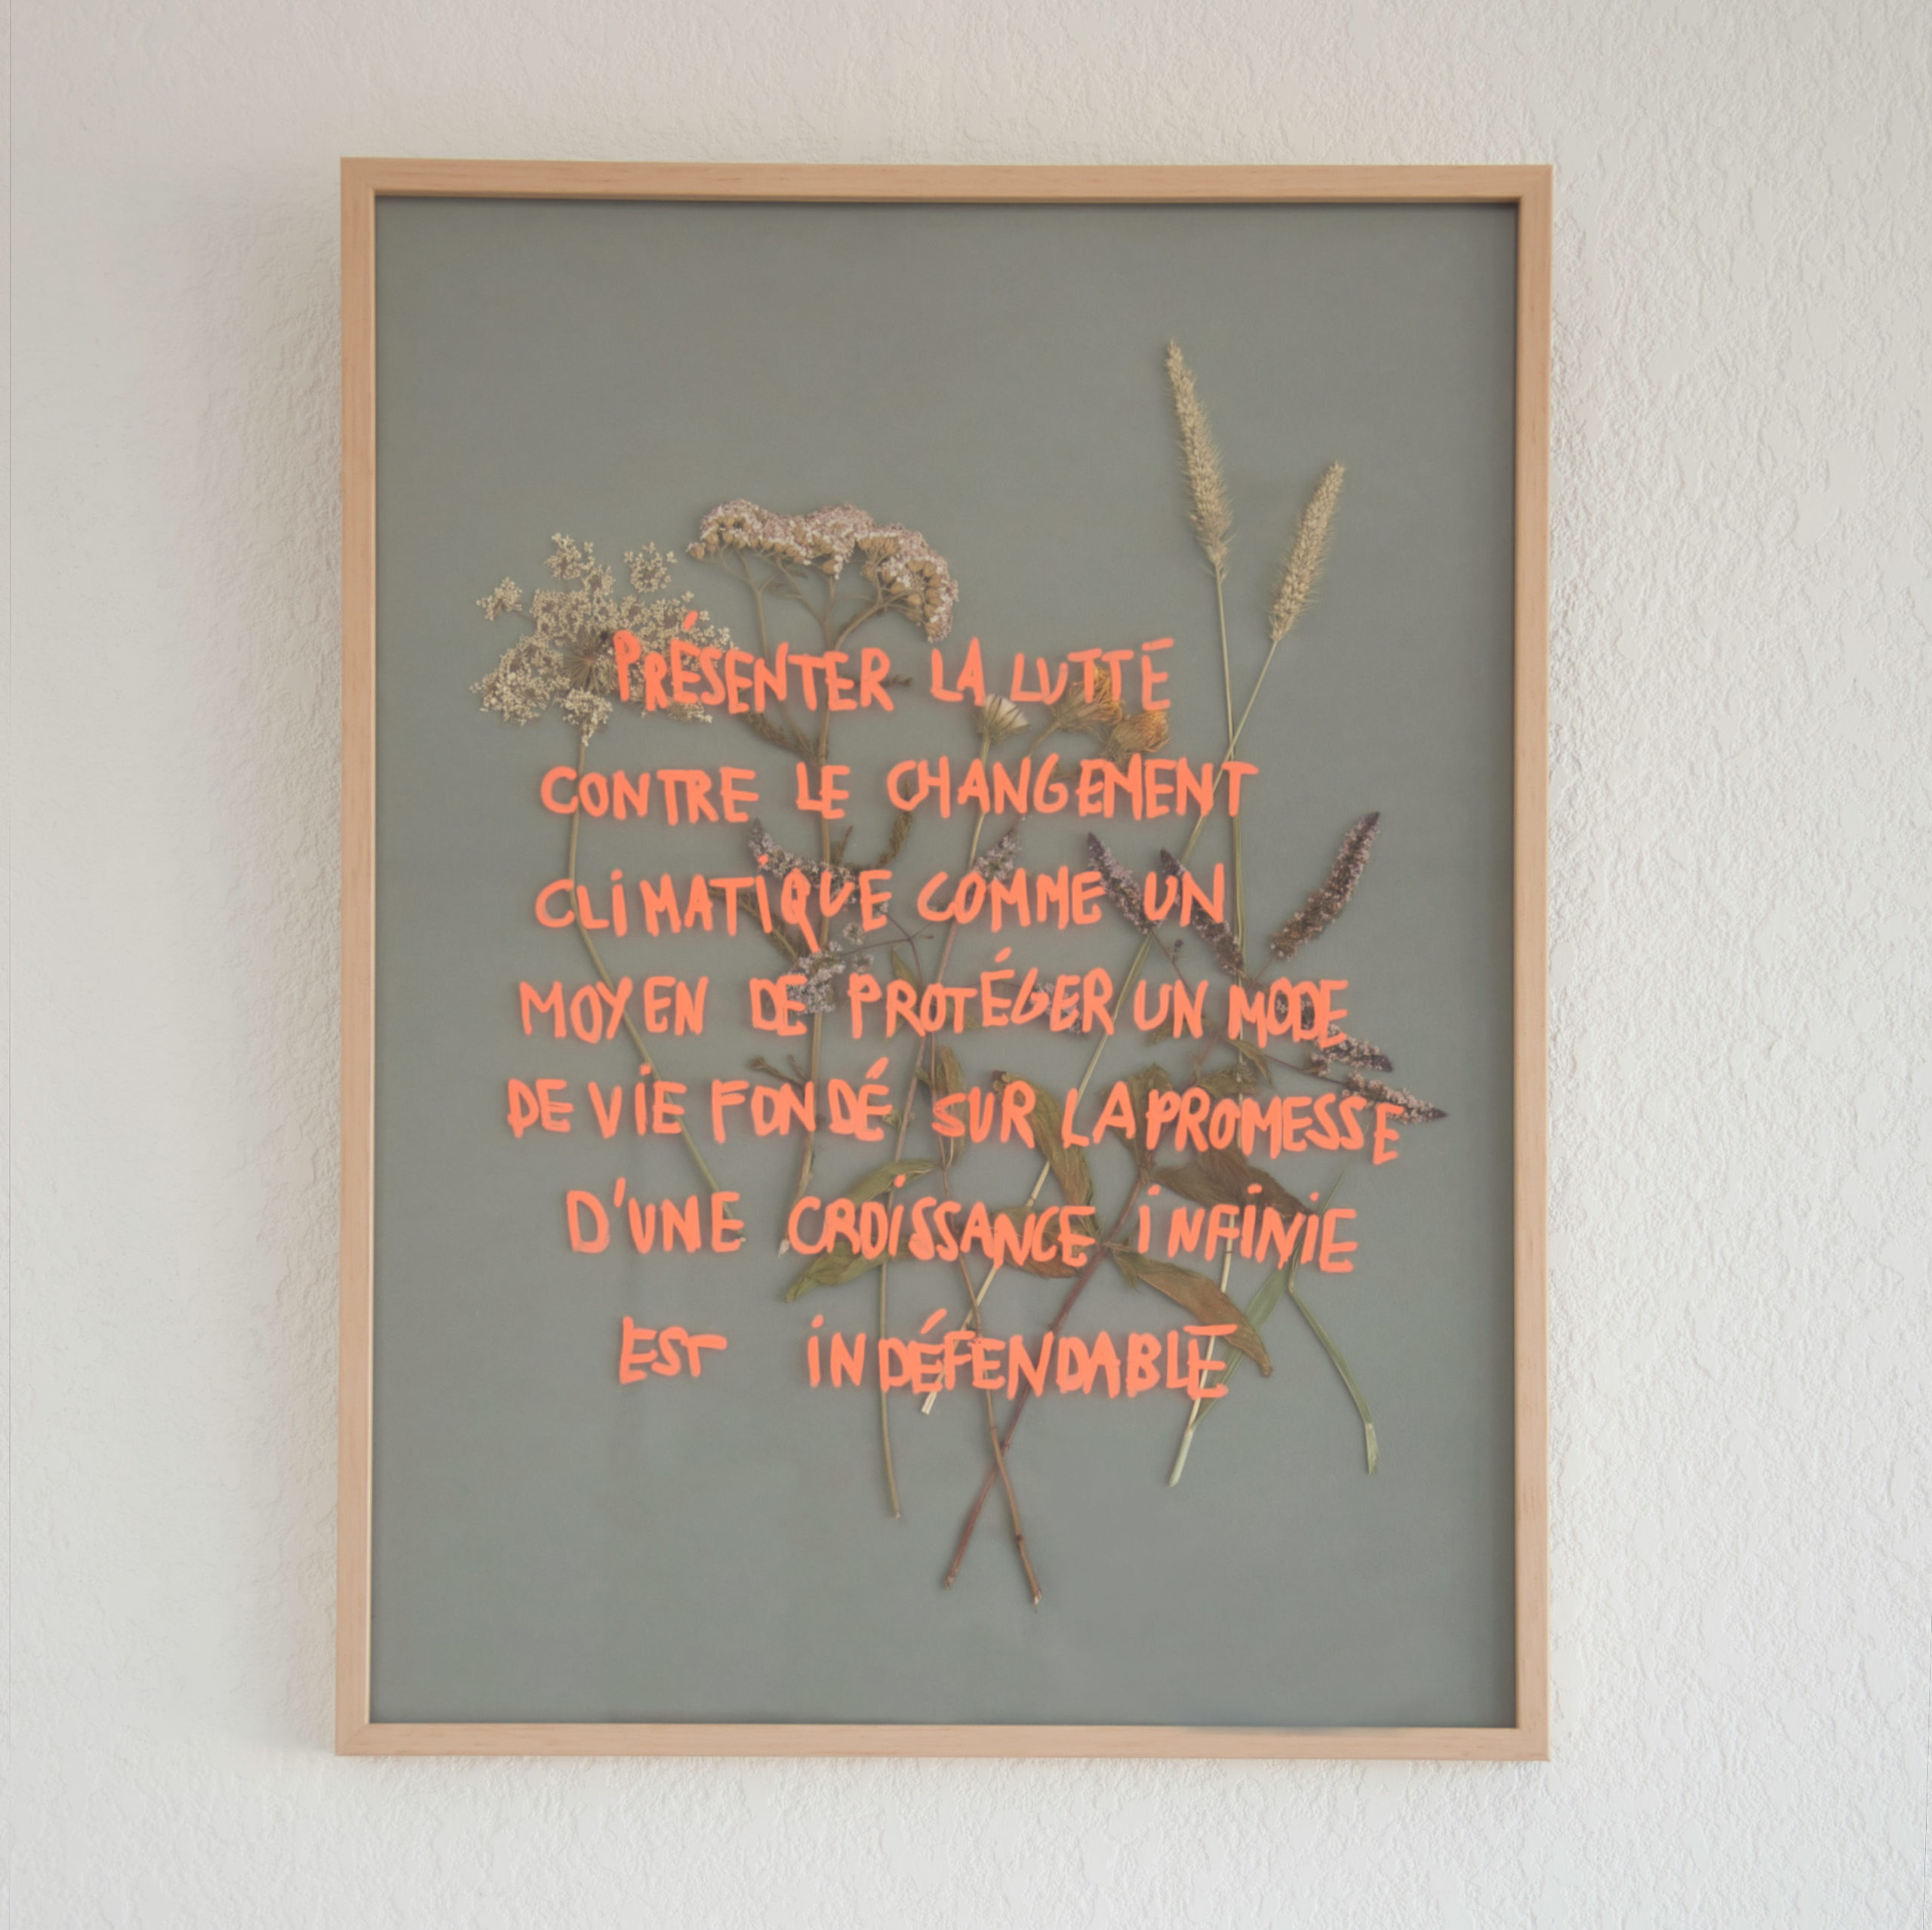 PRÉSENTER LA LUTTE
CONTRE LE CHANGEMENT
CLIMATIQUE COMME UN
MOYEN DE PROTÉGER UN MODE
DE VIE FONDÉ SUR LA PROMESSE
D'UNE CROISSANCE INFINIE
EST INDÉFENDABLE